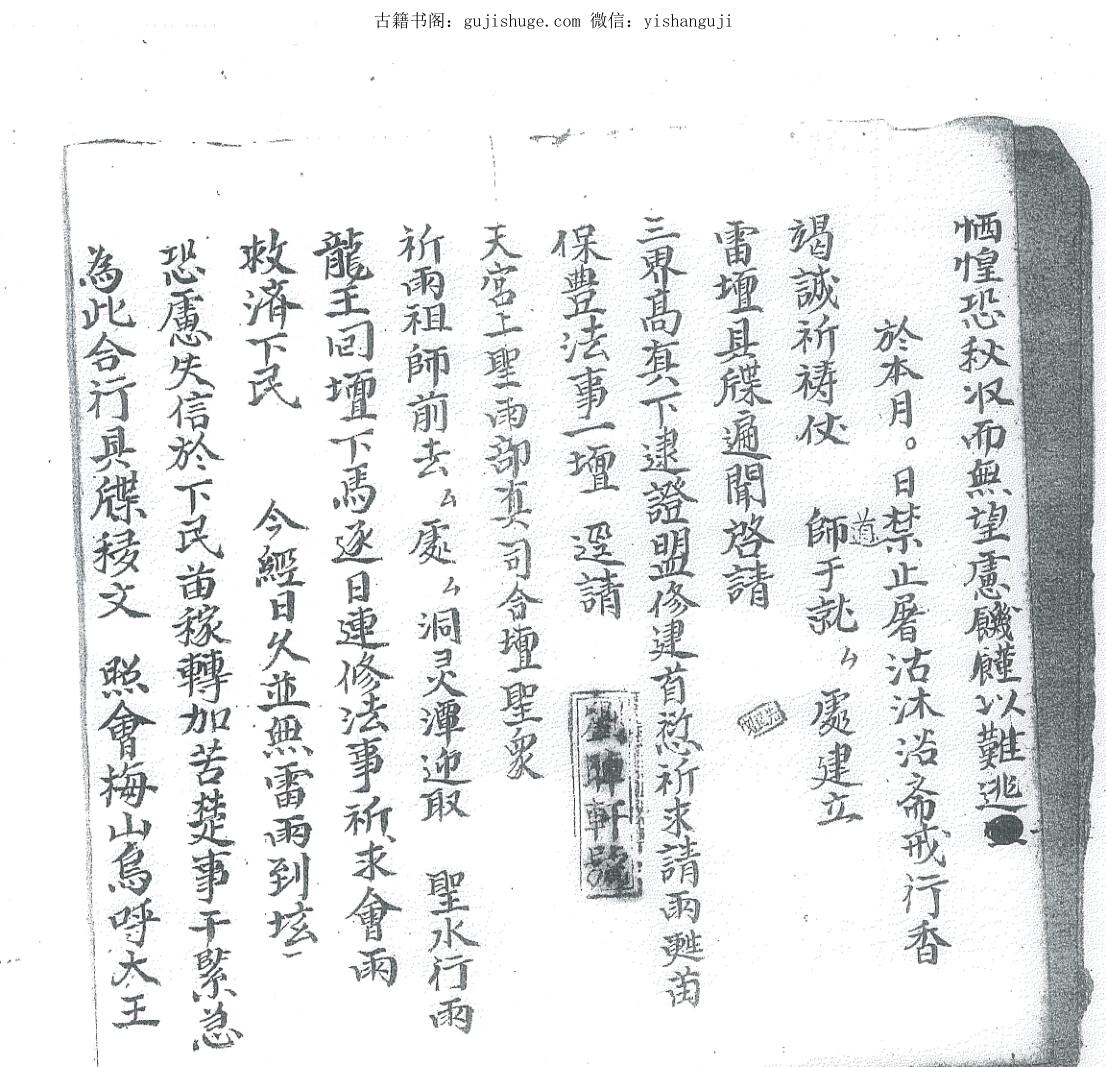 古籍书阁：gujishuge.com 微信：yishanguji
恓惶恐秋收而無望慮饑饉以難逃
於本月。日禁止屠沽沐浴斋戒行香
竭誠祈祷伏 道師于訛ㄙ處建立
雷壇具牒遍聞啓請
三界高真下逮證盟修建首愆祈求請雨甦苗
保豐法事一壇 逕請
天宫上聖雨部真司合壇聖衆
祈雨祖師前去ㄙ處ㄙ洞灵潭迎取 聖水行雨
龍王回壇下馬逐日連修法事祈求會雨
救濟下民 今經日久並無雷雨到
恐慮失信於下民苗稼轉加苦楚事干緊急
為此合行具牒移文 照會梅山烏呼大王
劉暉軒號